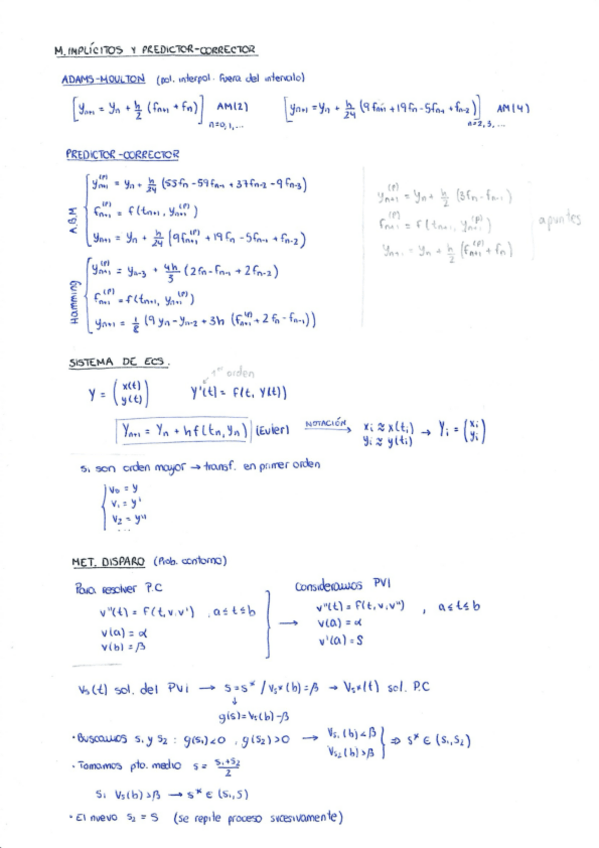 M. IMPLÍCITOS Y PREDICTOR-CORRECTOR
ADAMS-MOULTON (pol. interpol. fuera del intervalo)
[yn+1 = yn + h/2 (fn+1 + fn)] AM(2) n=0,1,...
[yn+1 = yn + h/24 (9fn+1 + 19fn - 5fn-1 + fn-2)] AM(4) n=2,3,...
PREDICTOR-CORRECTOR
A.B.M
yn+1^(P) = yn + h/24 (55fn - 59fn-1 + 37fn-2 - 9fn-3)
fn+1^(P) = f(tn+1, yn+1^(P))
yn+1 = yn + h/24 (9fn+1^(P) + 19fn - 5fn-1 + fn-2)
yn+1^(P) = yn + h/2 (3fn - fn-1)
fn+1^(P) = f(tn+1, yn+1^(P))
yn+1 = yn + h/2 (fn+1^(P) + fn)
apuntes
Hamming
yn+1^(P) = yn-3 + 4h/3 (2fn - fn-1 + 2fn-2)
fn+1^(P) = f(tn+1, yn+1^(P))
yn+1 = 1/8 (9yn - yn-2 + 3h (fn+1^(P) + 2fn - fn-1))
SISTEMA DE ECS.
1er orden
Y = (x(t) y(t)) Y'(t) = f(t, Y(t))
Yn+1 = Yn + hf(tn, Yn) (Euler) NOTACIÓN → xi ≈ x(ti) yi ≈ y(ti) → Yi = (xi yi)
Si son orden mayor → transf. en primer orden
v0 = y
v1 = y'
v2 = y''
...
MET. DISPARO (Prob. contorno)
Para resolver P.C
v''(t) = f(t,v,v') , a≤t≤b
v(a) = α
v(b) = β
→
Consideramos PVI
v''(t) = f(t,v,v'') , a≤t≤b
v(a) = α
v'(a) = S
Vs(t) sol. del PVi → s = s* / Vs*(b) = β → Vs*(t) sol. P.C
↓
g(s) = Vs(b) - β
• Buscamos s1 y s2 : g(s1)<0 , g(s2)>0 → Vs1(b)<β Vs2(b)>β ⇒ s* ∈ (s1,s2)
• Tomamos pto. medio s = s1+s2/2
Si Vs(b)>β → s* ∈ (s1,s)
• El nuevo s2 = s (se repite proceso sucesivamente)